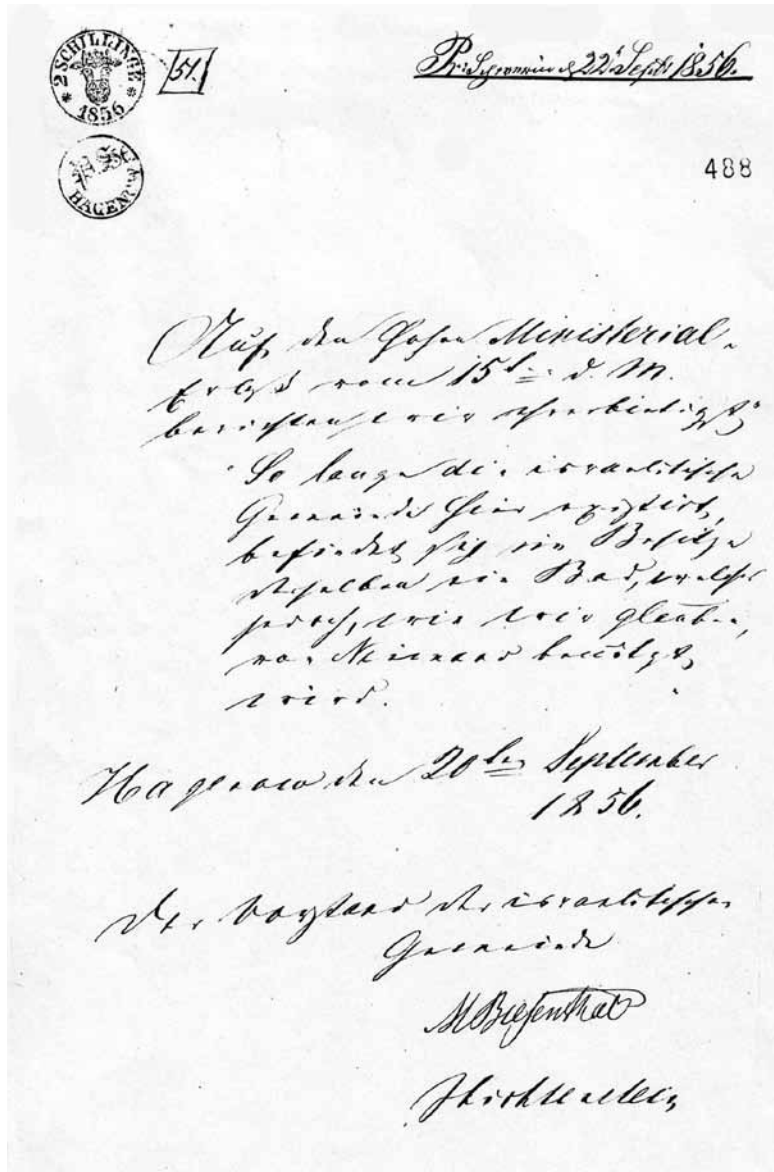 * 2 SCHILLINGE * 1856
51.
Pr. Schwerin d 22t Septb 1856.
HAGENOW
488
Auf den hohen Ministerial-
Erlaß vom 15t d. M.
berichten wir ehrerbietigst,
So lange die israelitische
Gemeinde hier existirt,
befindet sich im Besitze
derselben ein Bad, welches
jedoch, wie wir glauben,
von Niemand benützt
wird.
Hagenow den 20ten September
1856.
Der Vorstand der israelitischen
Gemeinde
M Biesenthal